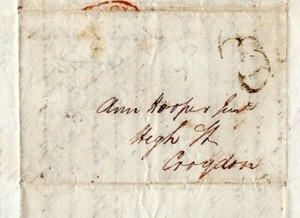 Ann Hooper Junr
High St
Croydon